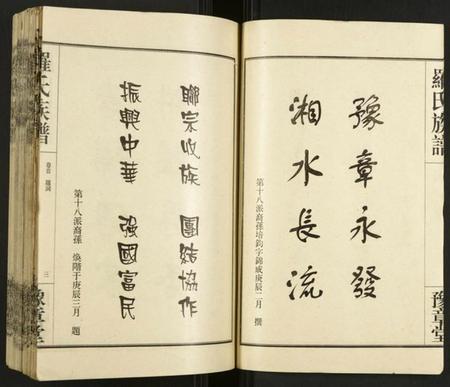 羅氏族譜
豫章堂
豫章永發
湘水長流
第十八派裔孫培鈞字錦成庚辰二月 撰
聯宗收族 團結協作
振興中華 强國富民
第十八派裔孫 煥階于庚辰三月 題
羅氏族譜
卷首 題詞
三
豫章堂